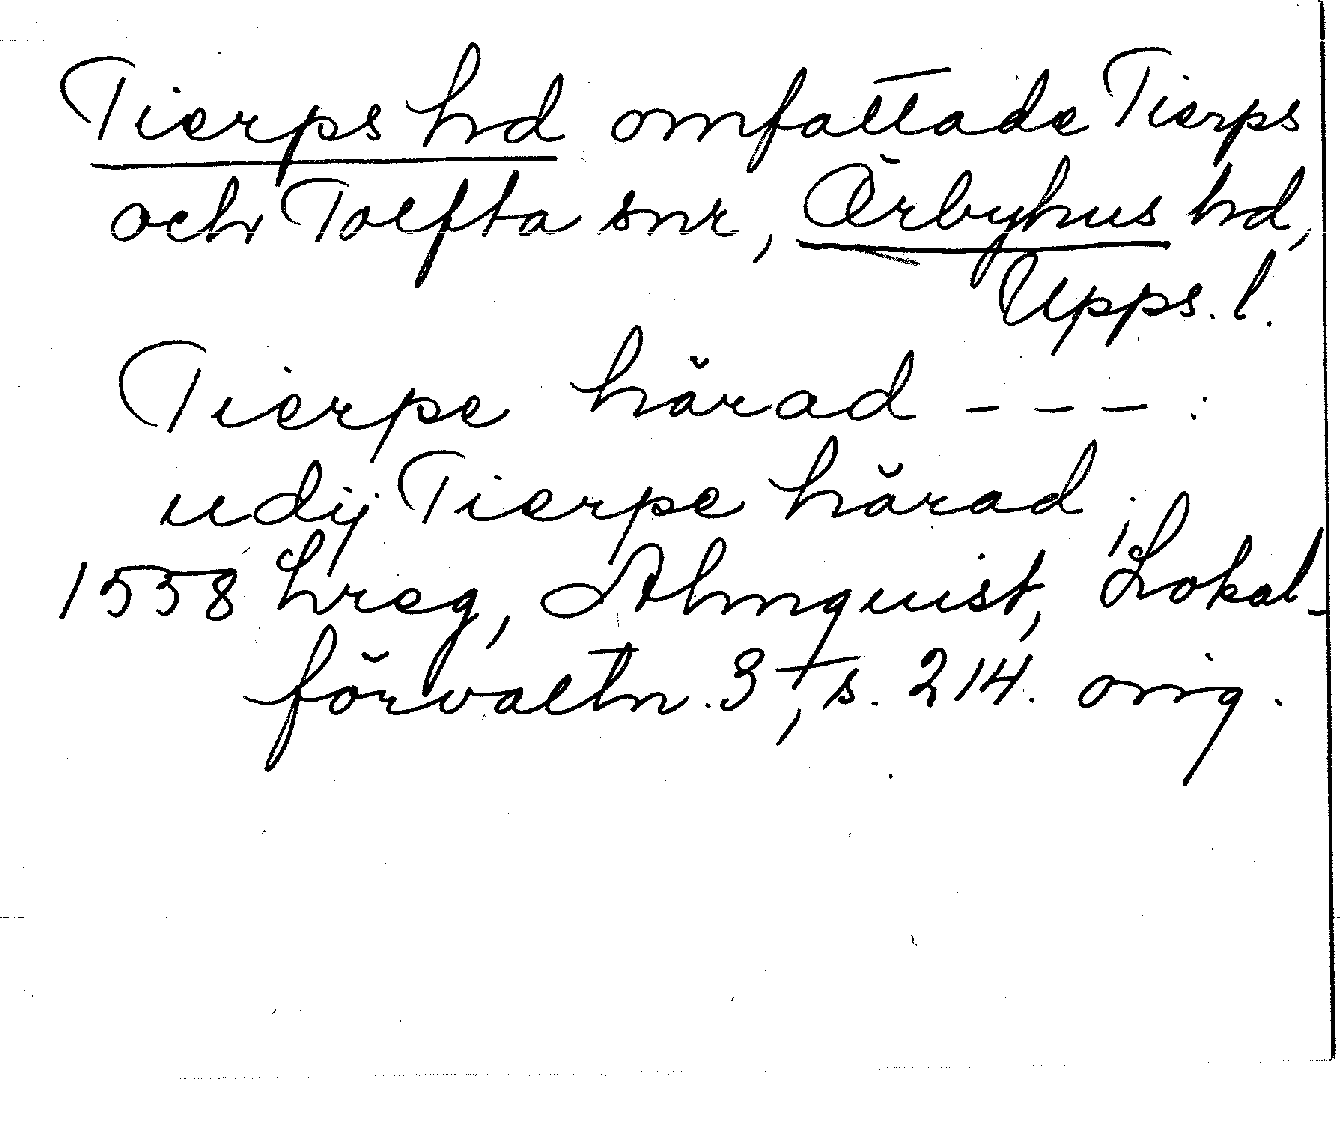 Tierps hd omfattade Tierps
och Tolfta snr, Örbyhus hd,
Upps. l.
Tierpe härad - - - :
udij Tierpe härad ;
1558 hreg, Almquist, Lokal-
förvaltn. 3, s. 214. orig.